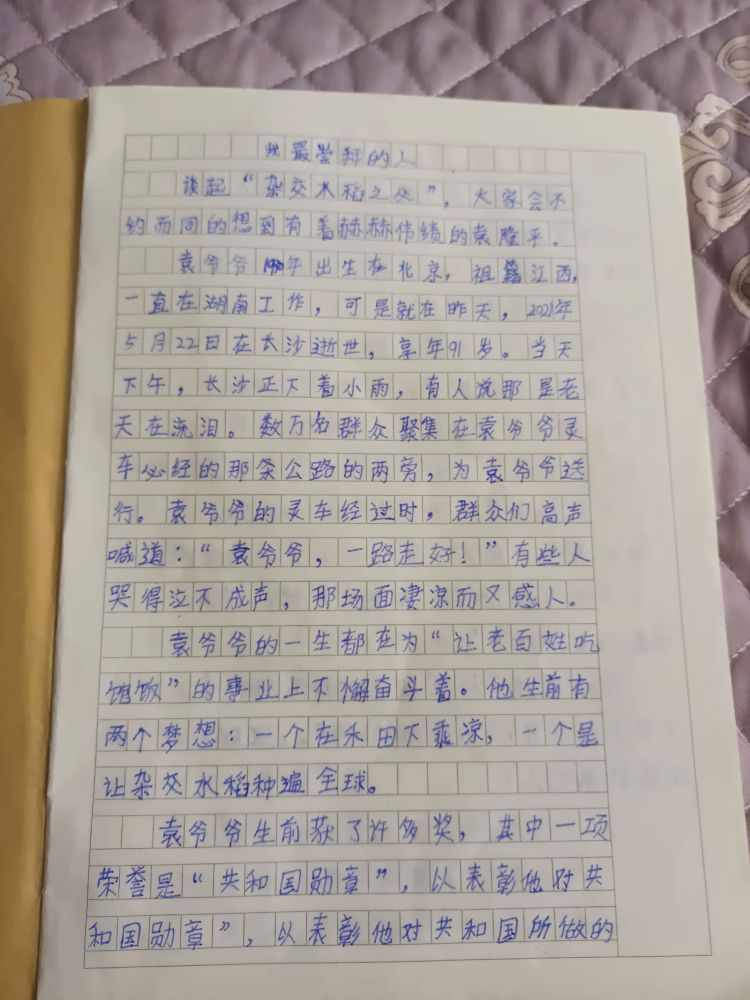 我最崇拜的人
谈起“杂交水稻之父”，大家会不
约而同的想到有着赫赫伟绩的袁隆平。
袁爷爷1930年出生在北京，祖籍江西，
一直在湖南工作，可是就在昨天，2021年
5月22日在长沙逝世，享年91岁。当天
下午，长沙正下着小雨，有人说那是老
天在流泪。数万名群众聚集在袁爷爷灵
车必经的那条公路的两旁，为袁爷爷送
行。袁爷爷的灵车经过时，群众们高声
喊道：“袁爷爷，一路走好！”有些人
哭得泣不成声，那场面凄凉而又感人。
袁爷爷的一生都在为“让老百姓吃
饱饭”的事业上不懈奋斗着。他生前有
两个梦想：一个在禾田下乘凉，一个是
让杂交水稻种遍全球。
袁爷爷生前获了许多奖，其中一项
荣誉是“共和国勋章”，以表彰他对共
和国勋章”，以表彰他对共和国所做的